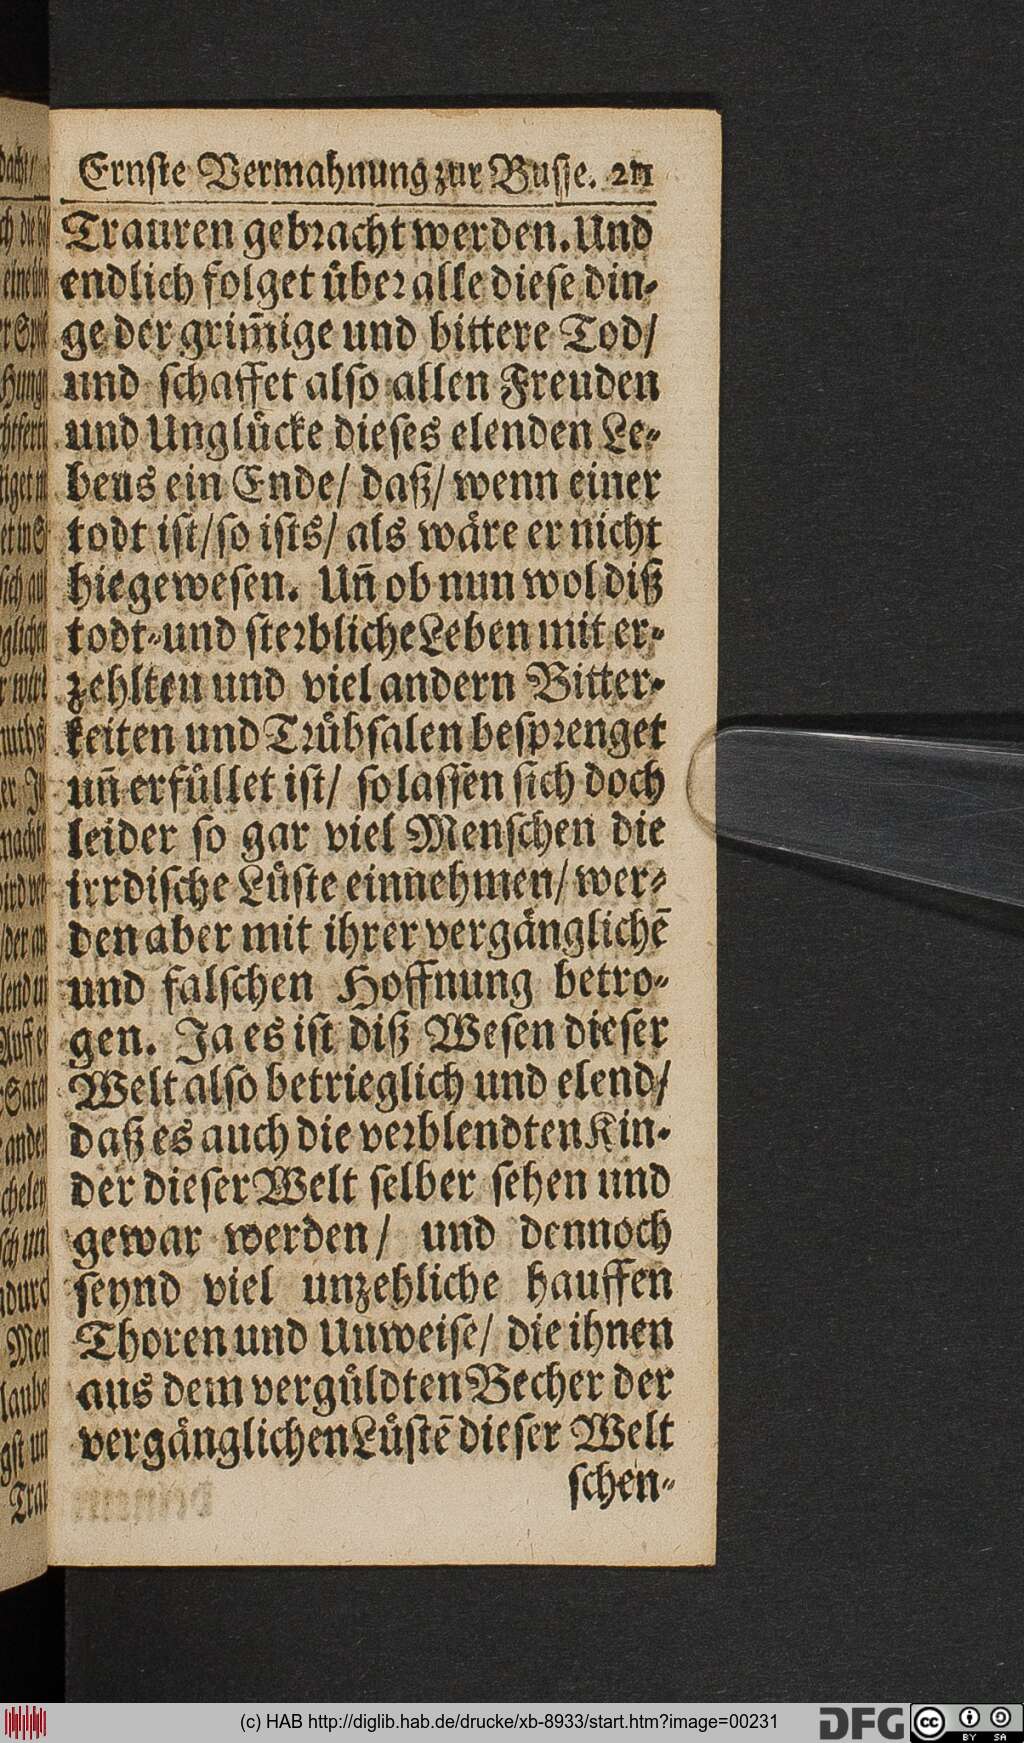 Ernſte Vermahnung zur Buſſe. 211
Trauren gebracht werden. Und
endlich folget uͤber alle dieſe din⸗
ge der grim̃ige und bittere Tod/
und ſchaffet alſo allen Freuden
und Ungluͤcke dieſes elenden Le⸗
bens ein Ende/ daß/ wenn einer
todt iſt/ ſo iſts/ als waͤre er nicht
hie geweſen. Uñ ob nun wol diß
todt⸗und ſterbliche Leben mit er⸗
zehlten und viel andern Bitter⸗
keiten und Truͤbſalen beſprenget
uñ erfuͤllet iſt/ ſo laſſen ſich doch
leider ſo gar viel Menſchen die
irrdiſche Luͤſte einnehmen/ wer⸗
den aber mit ihrer vergaͤnglichẽ
und falſchen Hoffnung betro⸗
gen. Ja es iſt diß Weſen dieſer
Welt alſo betrieglich und elend/
daß es auch die verblendten Kin⸗
der dieſer Welt ſelber ſehen und
gewar werden/ und dennoch
ſeynd viel unzehliche hauffen
Thoren und Unweiſe/ die ihnen
aus dem verguͤldten Becher der
vergaͤnglichen Luͤſtẽ dieſer Welt
ſchen⸗
(c) HAB http://diglib.hab.de/drucke/xb-8933/start.htm?image=00231
DFG
cc
BY SA